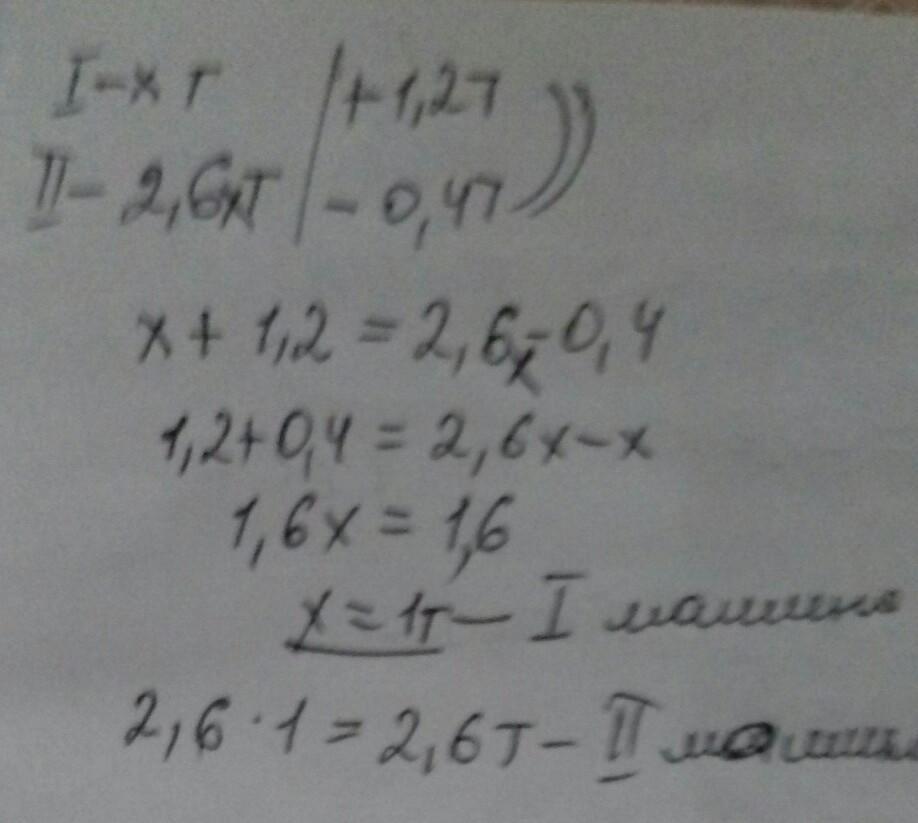 I - x т | + 1,2т
II - 2,6xт | - 0,4т
x + 1,2 = 2,6x - 0,4
1,2 + 0,4 = 2,6x - x
1,6x = 1,6
x = 1т - I машина
2,6 · 1 = 2,6т - II машина